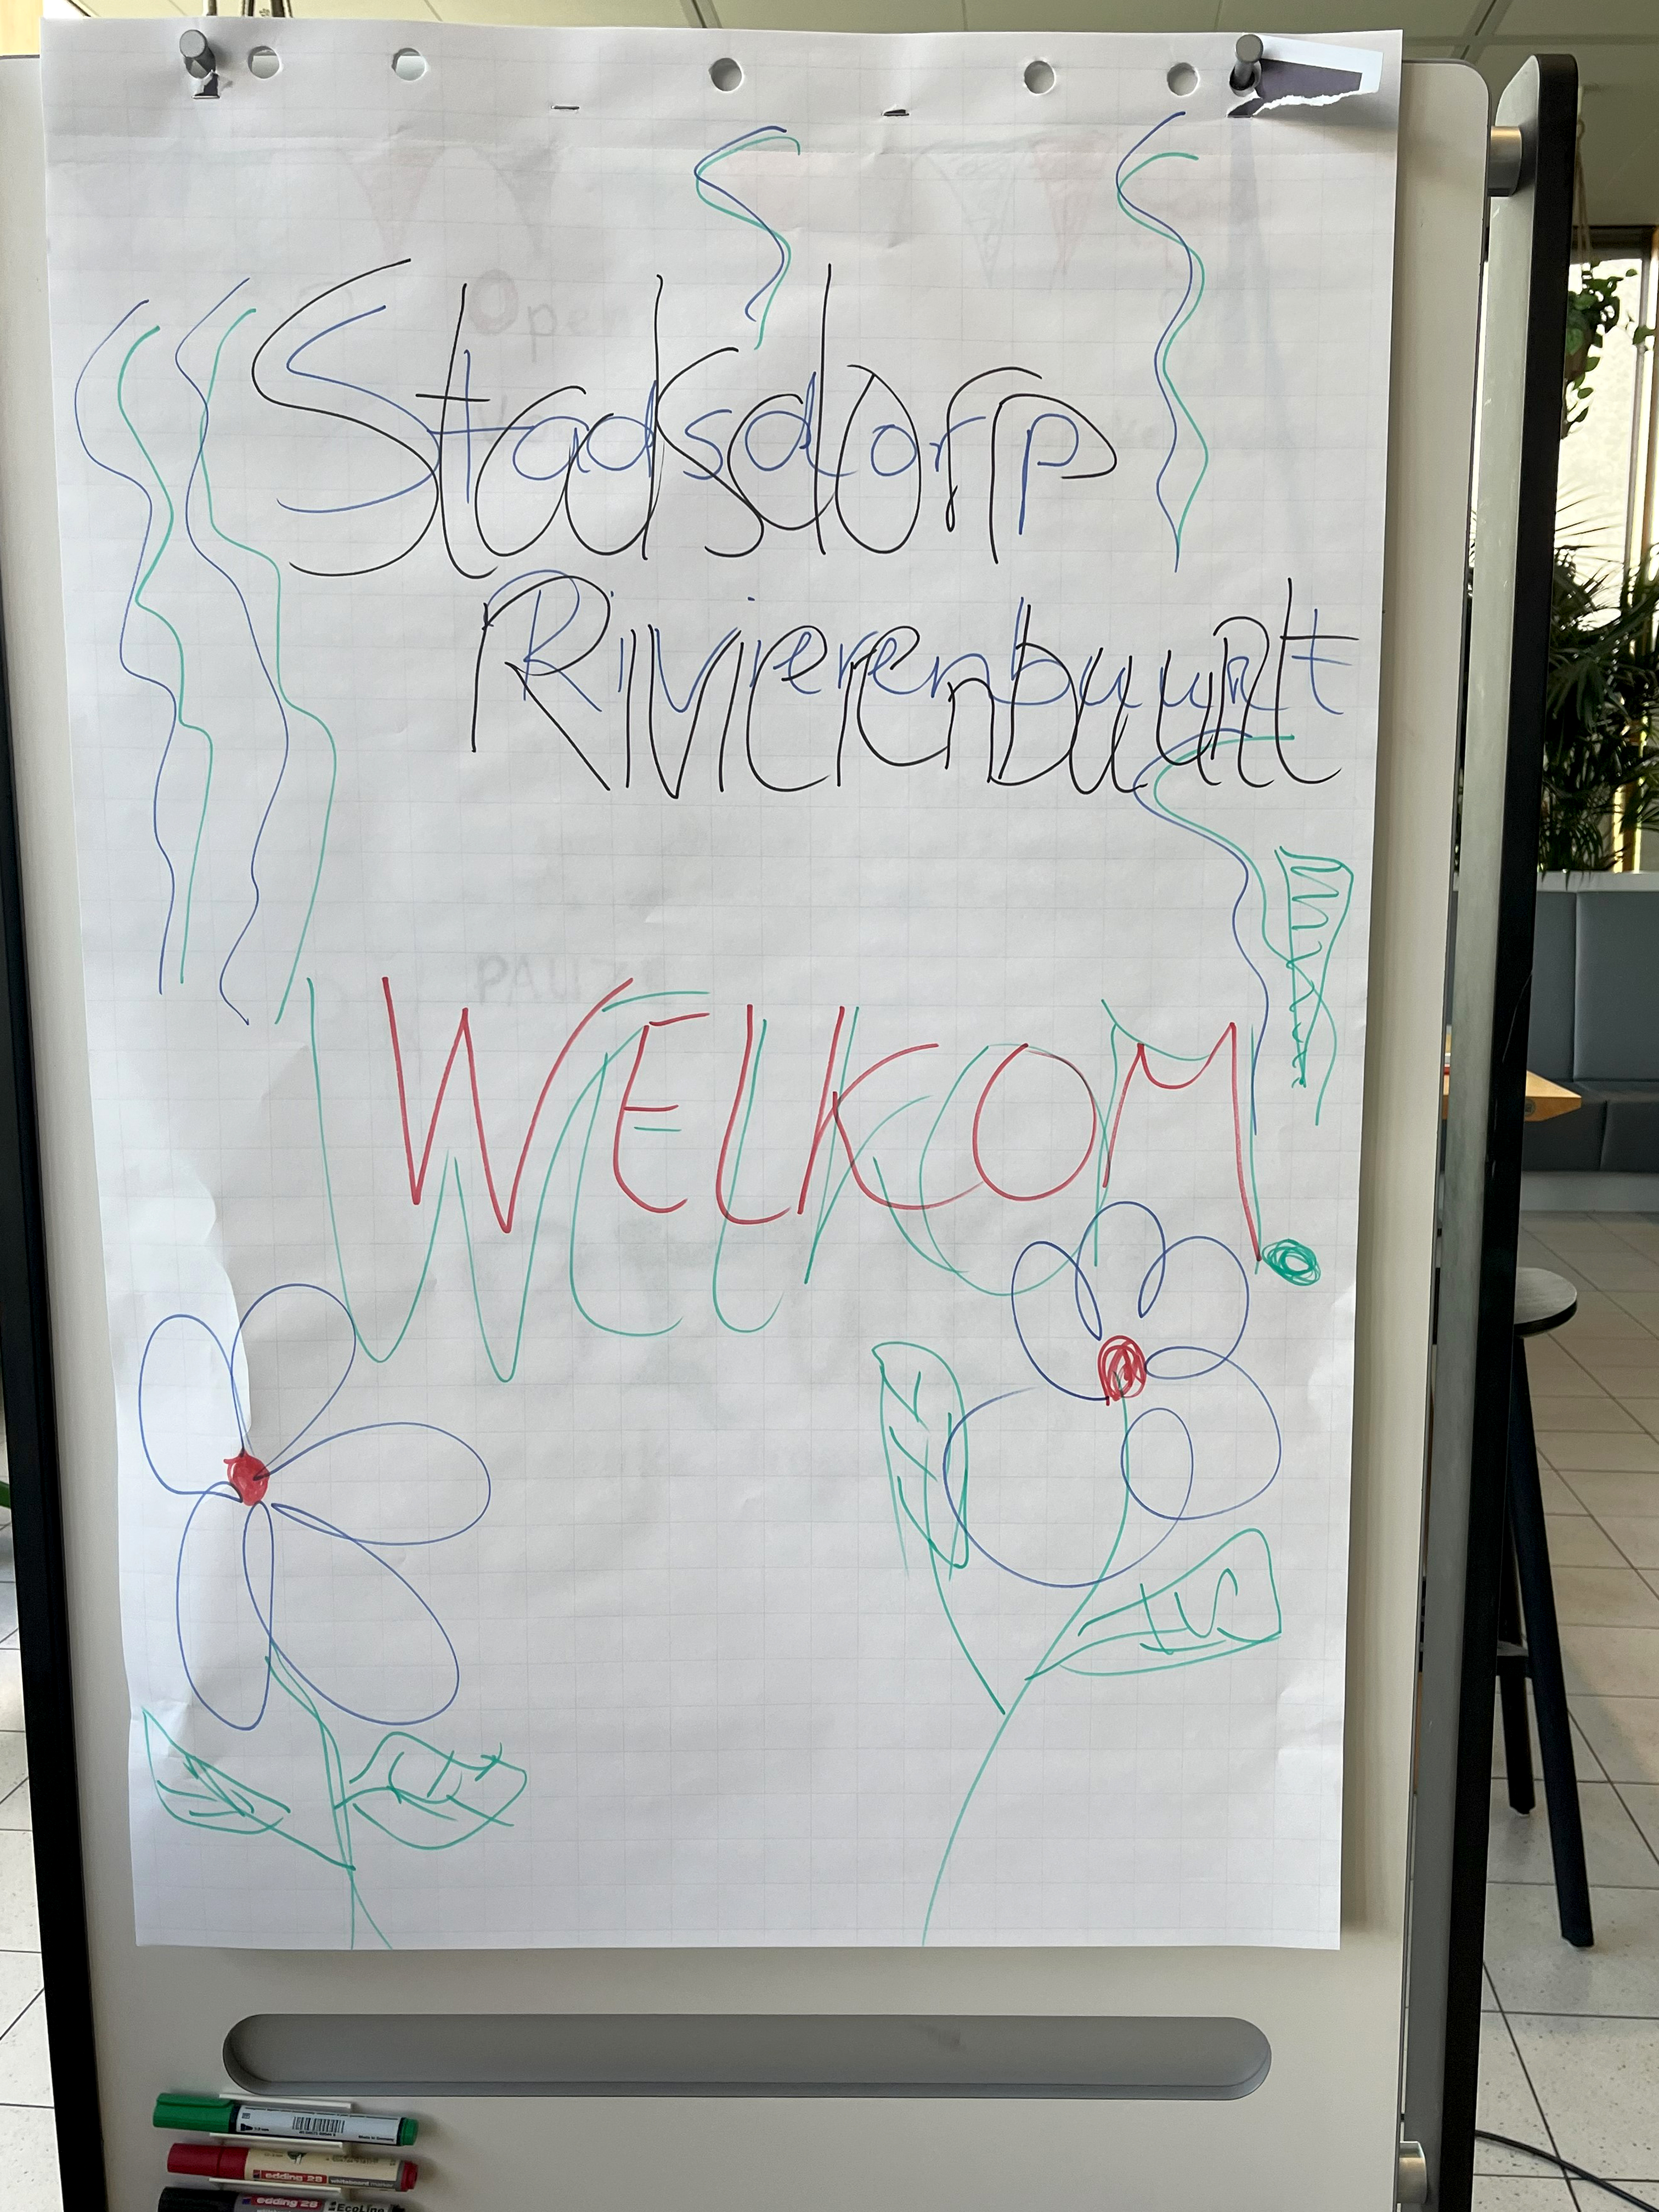 Stadsdorp
Rivierenbuurt
WELKOM!
edding 28
whiteboard marker
edding 28
EcoLine